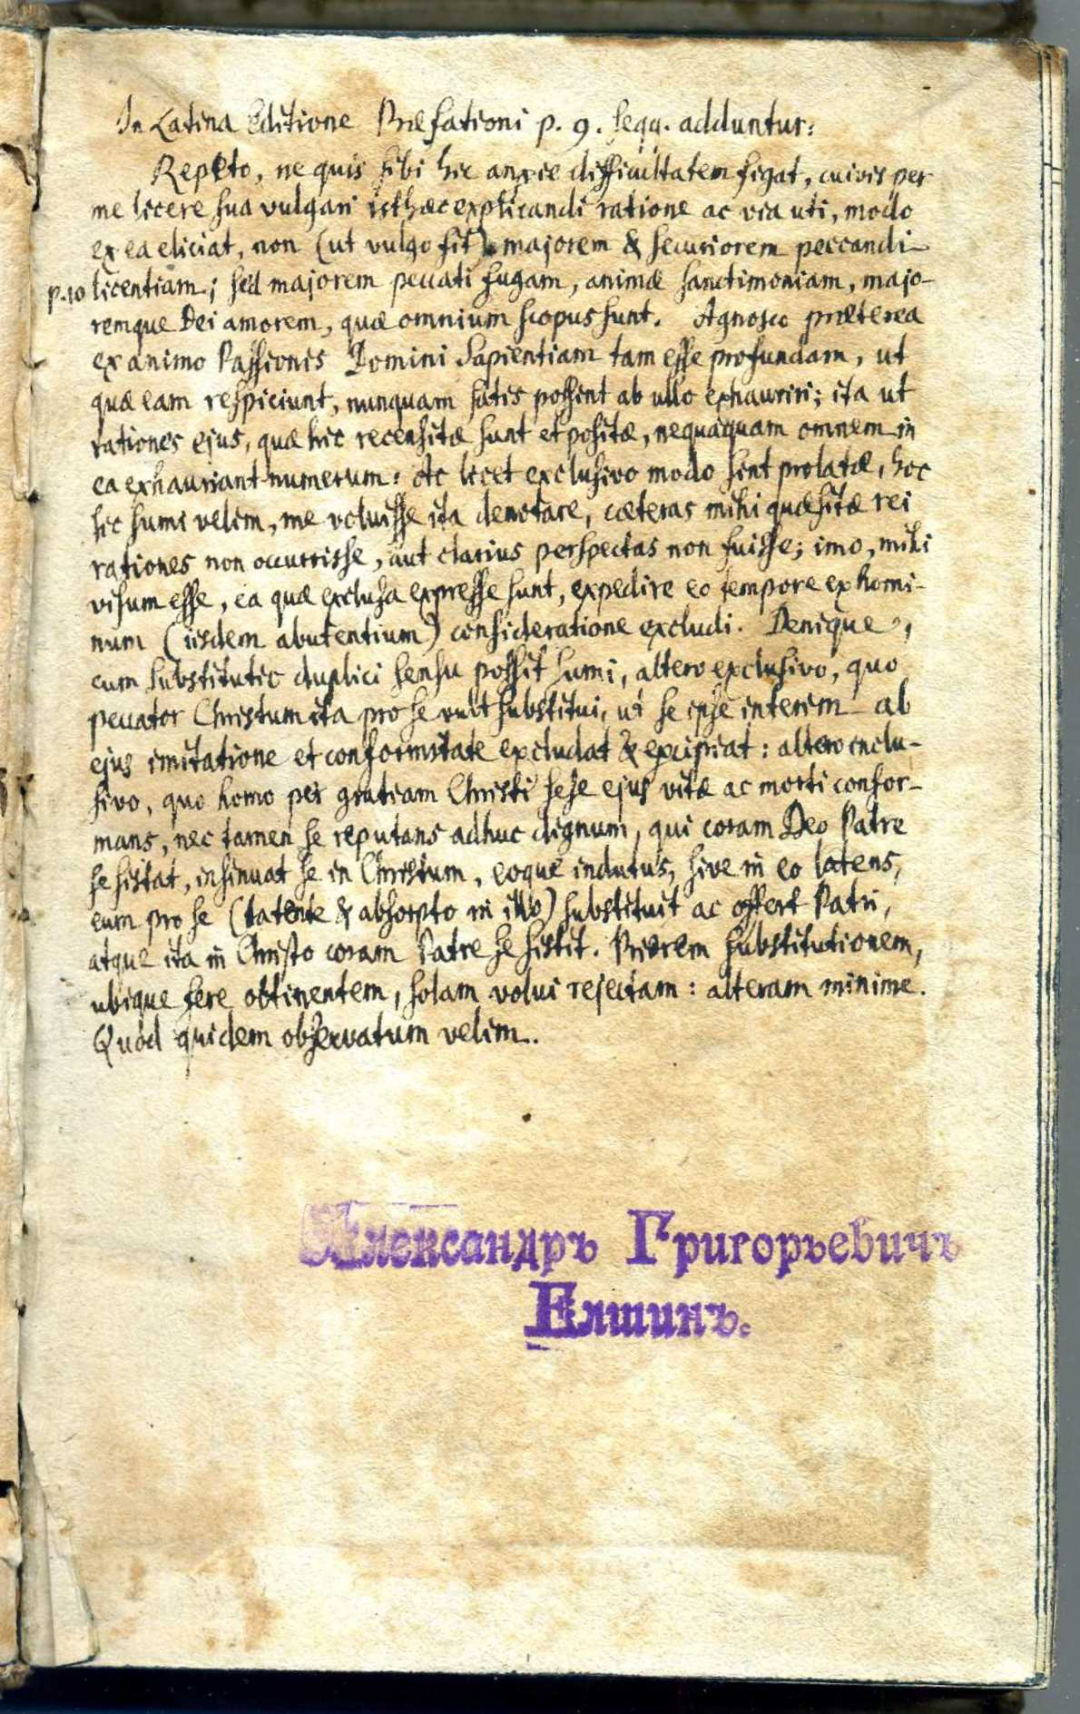 In Latina Editione Præfationi p. 9. seqq. adduntur:
Repeto, ne quis sibi hic anxie difficultatem figat, cuivis per
me licere sua vulgari isthæc explicandi ratione ac via uti, modo
ex ea eliciat, non (ut vulgo fit) majorem & securiorem peccandi
p.10 licentiam; sed majorem peccati fugam, animæ sanctimoniam, majo-
remque Dei amorem, quæ omnium scopus sunt. Agnosco præterea
ex animo Passionis Domini Sapientiam tam esse profundam, ut
quæ eam respiciunt, nunquam satis possint ab ullo exhauriri; ita ut
rationes ejus, quæ hic recensitæ sunt et positæ, nequaquam omnem in
ea exhauriant numerum: Ac licet exclusivo modo sint prolatæ, hoc
sic sumi velim, me voluisse ita denotare, cæteras mihi quæsitæ rei
rationes non occurrisse, aut clarius perspectas non fuisse; imo, mihi
visum esse, ea quæ exclusa expresse sunt, expedire eo tempore ex homi-
num (iisdem abutentium) consideratione excludi. Denique,
cum Substitutio duplici sensu possit sumi, altero exclusivo, quo
peccator Christum ita pro se vult substitui, ut se ipse interim ab
ejus imitatione et conformitate excludat & excipiat: altero inclu-
sivo, quo homo per gratiam Christi sese ejus vitæ ac morti confor-
mans, nec tamen se reputans adhuc dignum, qui coram Deo Patre
se sistat, insinuat se in Christum, eoque indutus, sive in eo latens,
eum pro se (latente & absorpto in illo) substituit ac offert Patri,
atque ita in Christo coram Patre se sistit. Priorem substitutionem,
ubique fere obtinentem, solam volui rejectam: alteram minime.
Quod quidem observatum velim.
Александръ Григорьевичъ
Елшинъ.